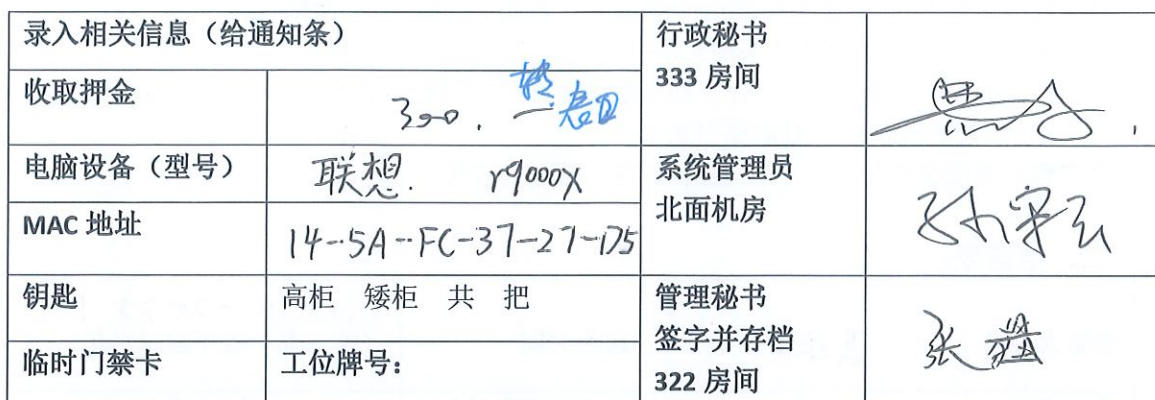 录入相关信息（给通知条）
行政秘书
333 房间
收取押金
300.
电脑设备（型号）
联想. r9000X
系统管理员
北面机房
MAC 地址
14-5A-FC-37-27-D5
钥匙
高柜 矮柜 共 把
管理秘书
签字并存档
322 房间
张
临时门禁卡
工位牌号：